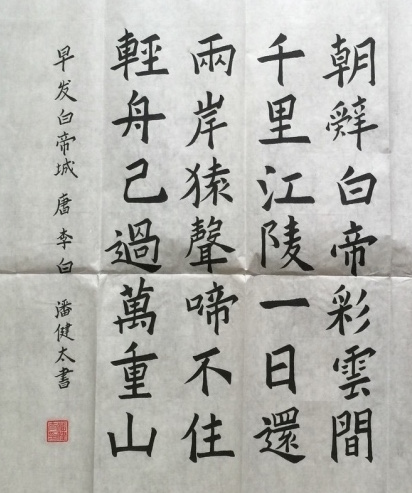 朝辤白帝彩雲間
千里江陵一日還
兩岸猿聲啼不住
輕舟己過萬重山
早发白帝城 唐 李白 潘健太書